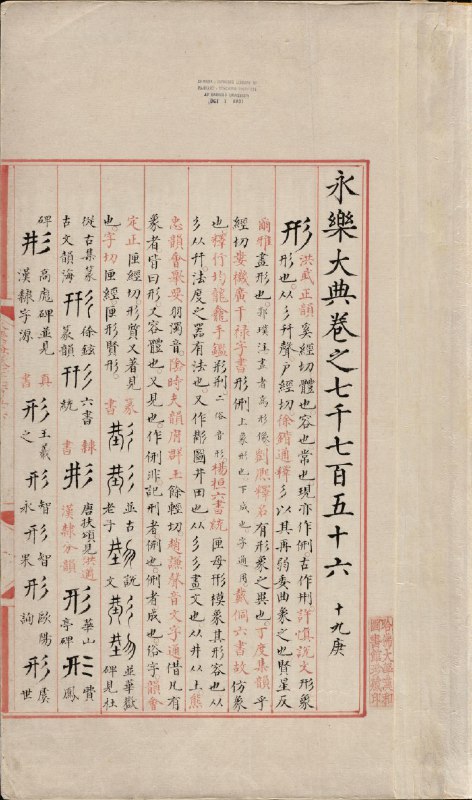 永樂大典卷之七千七百五十六 十九庚
形 洪武正韻奚經切體也容也常也現亦作侀古作㓝許慎說文形象
形也从彡幵聲戶經切徐鍇通釋彡以其再弱委曲象之也賢星反
爾雅畫形也郭璞注畫者為形像劉熙釋名有形象之異也丁度集韻乎
經切婁機廣干禄字書形侀上象形也下成也字通用戴侗六書故仿象
也釋行均龍龕手鑑形刑二俗音形楊桓六書統匣母形模象其形容也从
彡从幵法度之器有法也又作圖井田也从彡彡畫文也从井从土熊
忠韻會舉要羽濁音陰時夫韻府群玉餘輕切趙謙聲音文字通借凡有
象者皆曰形又容體也又見也作侀非記刑者侀也侀者成也俗字韻會
定正匣經切形質又著見
也字切匣經匣形賢形。
篆書 並古老子 說文 並華嶽碑見杜
從古集篆古文韻海 徐鉉篆韻 六書統 隸書 唐扶頌見洪邁漢隸分韻 形 華山亭碑 形 費鳳
碑 高彪碑並見漢隸字源 真書 形 王羲之 形 智永 形 智果 形 歐陽詢 形 虞世
CHINESE-JAPANESE LIBRARY OF
HARVARD-YENCHING INSTITUTE
AT HARVARD UNIVERSITY
OCT 1 1931
哈佛大學漢和
圖書館珍藏印